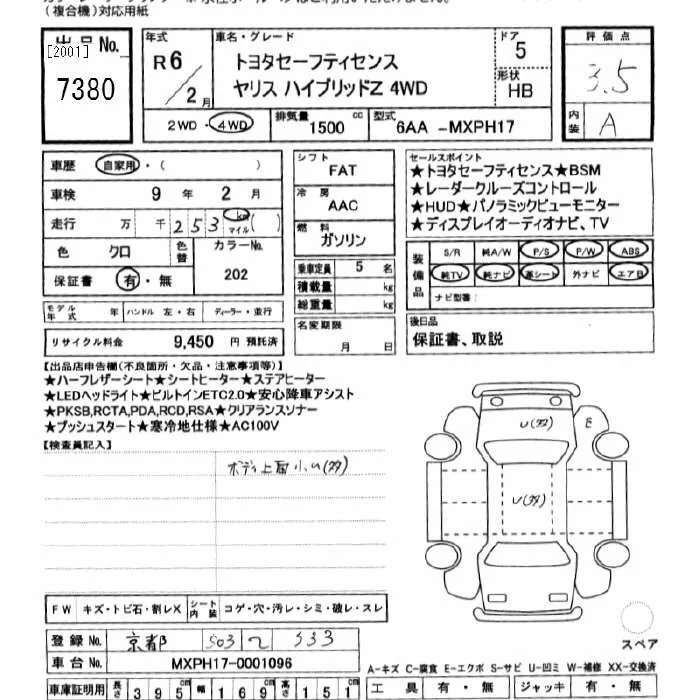 (複合機)対応用紙
出品No.
[2001]
7380
年式
R6/2月
車名・グレード
トヨタセーフティセンス
ヤリス ハイブリッドZ 4WD
ドア
5
形状
HB
評価点
3.5
内装
A
2WD・4WD
排気量 1500 cc
型式 6AA -MXPH17
車歴 自家用・( )
車検 9年 2月
走行 万 千 253 km マイル ( )
色 クロ
色替
カラーNo.
202
保証書 有・無
モデル年式 年 ハンドル 左・右 ディーラー・並行
リサイクル料金 9,450 円 預託済
シフト
FAT
冷房
AAC
燃料
ガソリン
乗車定員 5 名
積載量 kg
総重量 kg
名変期限
月 日
セールスポイント
★トヨタセーフティセンス★BSM
★レーダークルーズコントロール
★HUD★パノラミックビューモニター
★ディスプレイオーディオナビ、TV
装備品
S/R 純A/W P/S P/W ABS
純TV 純ナビ 革シート 外ナビ エアB
ナビ型番:
後日品
保証書、取説
【出品店申告欄(不良箇所・欠品・注意事項等)】
★ハーフレザーシート★シートヒーター★ステアヒーター
★LEDヘッドライト★ビルトインETC2.0★安心降車アシスト
★PKSB,RCTA,PDA,RCD,RSA★クリアランスソナー
★プッシュスタート★寒冷地仕様★AC100V
【検査員記入】
ボディ上面小U(多)
U(多)
E
U(多)
FW キズ・トビ石・割レX
シート内装 コゲ・穴・汚レ・シミ・破レ・スレ
登録No. 京都 503 533
車台No. MXPH17-0001096
車庫証明用 長さ 395cm 幅 169cm 高さ 151
スペア
A-キズ C-腐食 E-エクボ S-サビ U-凹ミ W-補修 XX-交換済
工具 有・無 ジャッキ 有・無